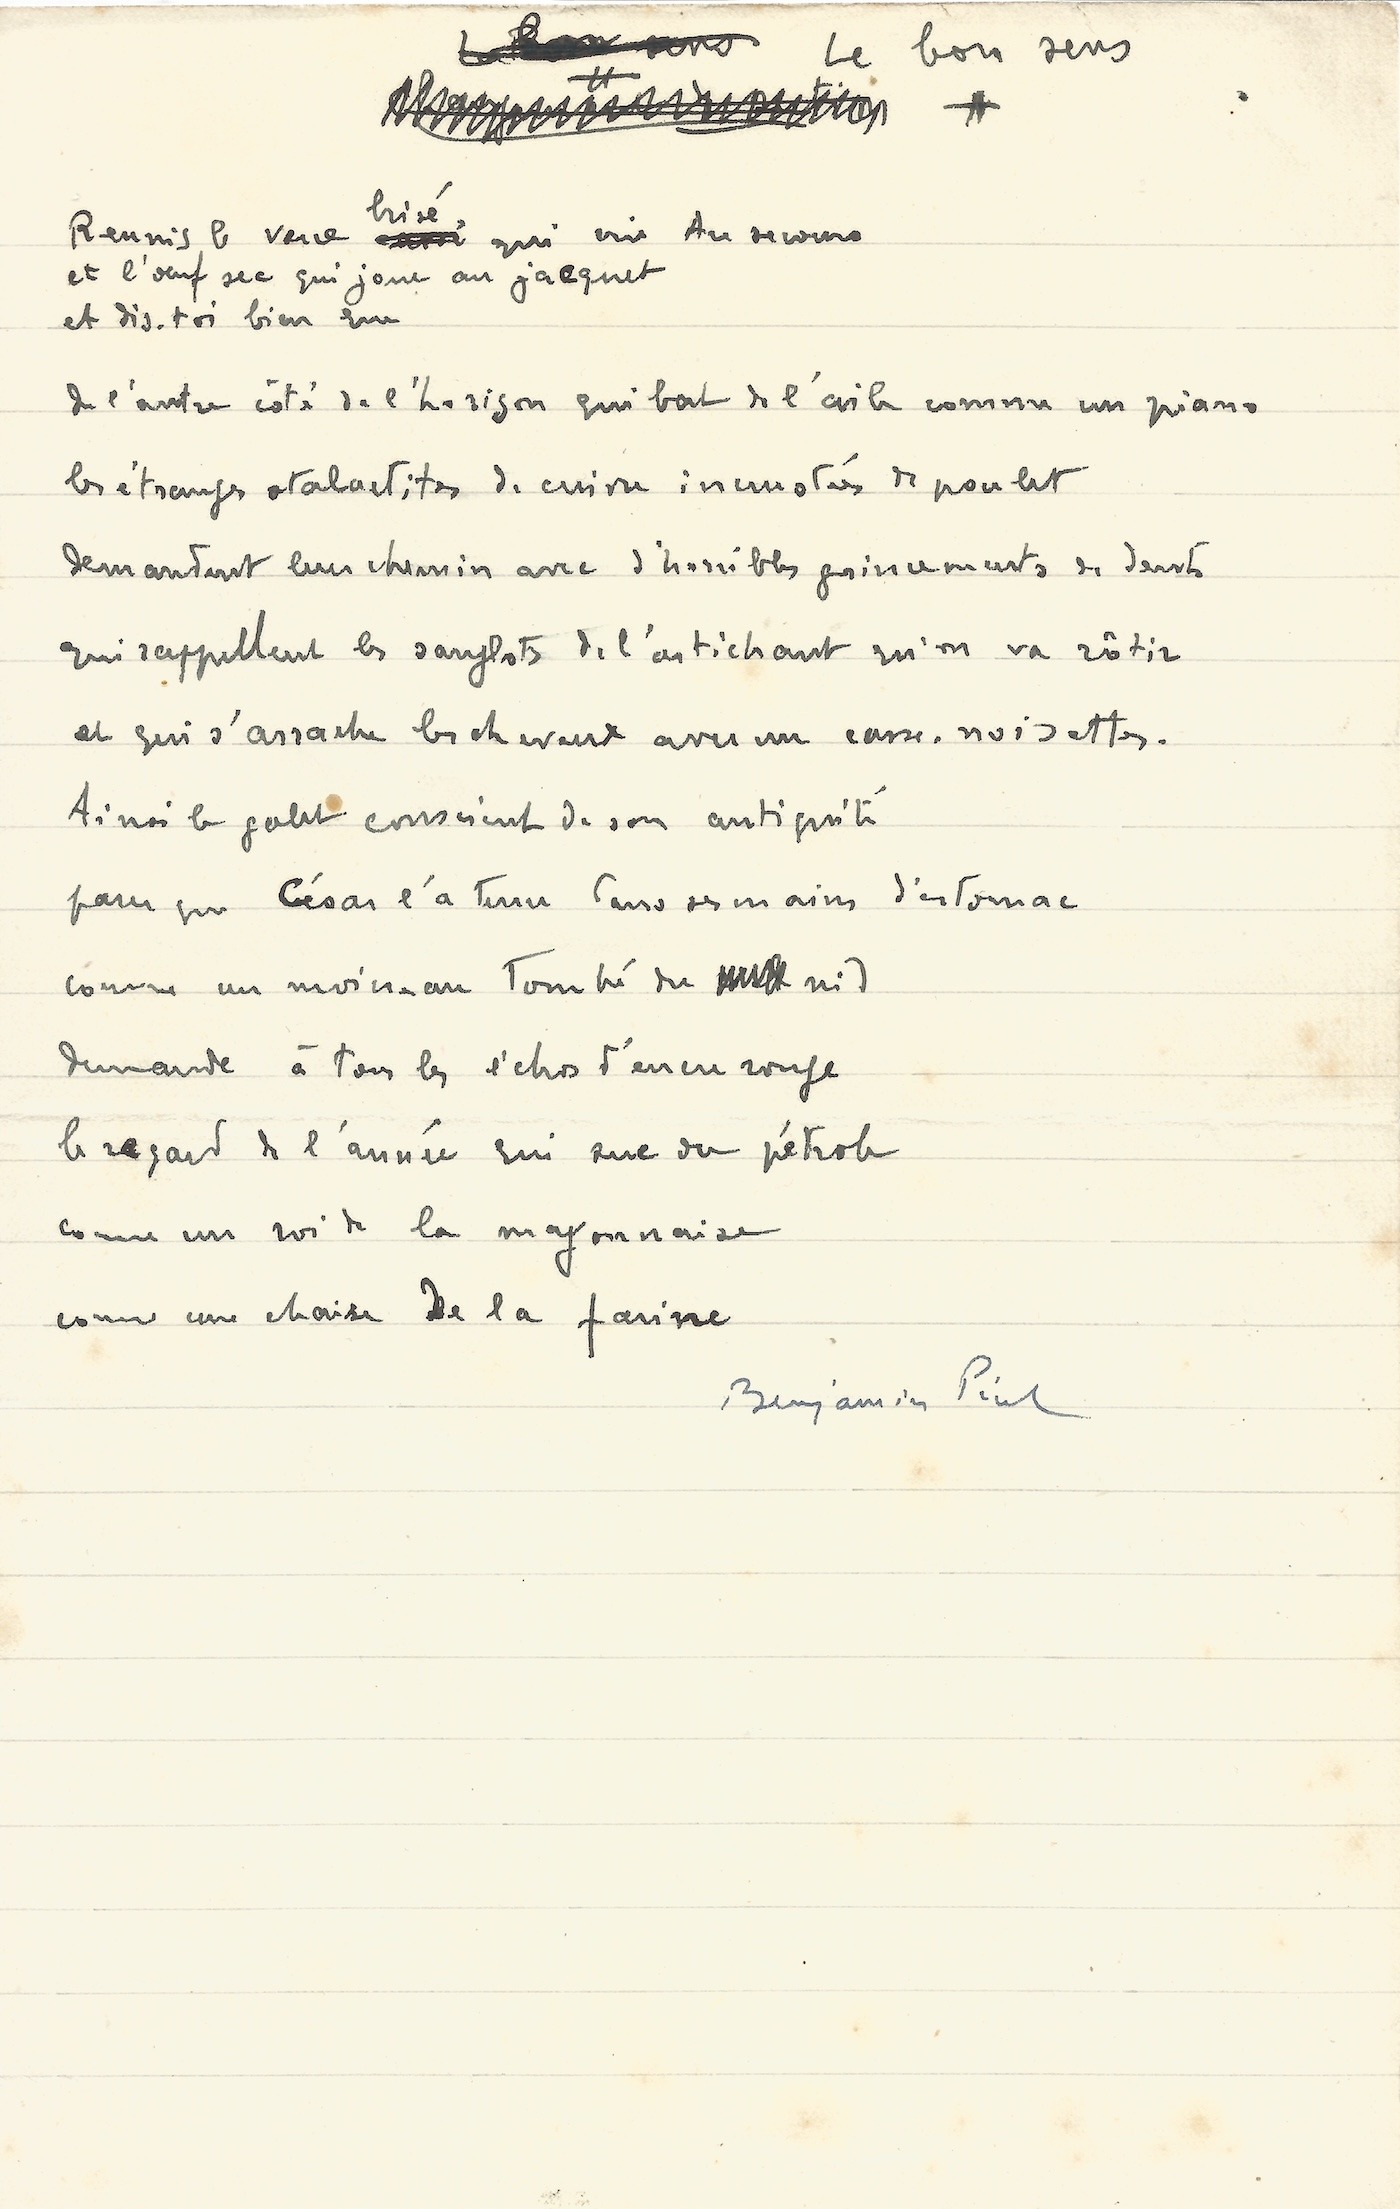 Le bon sens
Le bon sens
Reunis le verre brisé qui crie Au secours
et l'œuf sec qui joue au jacquet
et dis-toi bien que
de l'autre côté de l'horizon qui bat de l'aile comme un piano
les étranges stalactites de cuivre incrustées de poulet
demandent leur chemin avec d'horribles grincements de dents
qui rappellent les sanglots de l'artichaut qu'on va rôtir
et qui s'arrache les cheveux avec un casse-noisettes.
Ainsi le galet conscient de son antiquité
parce que César l'a tenu dans ses mains d'estomac
comme un moineau tombé du nid
demande à tous les échos d'encre rouge
le regard de l'année qui sue du pétrole
comme un roi de la mayonnaise
comme une chaise De la farine
Benjamin Péret